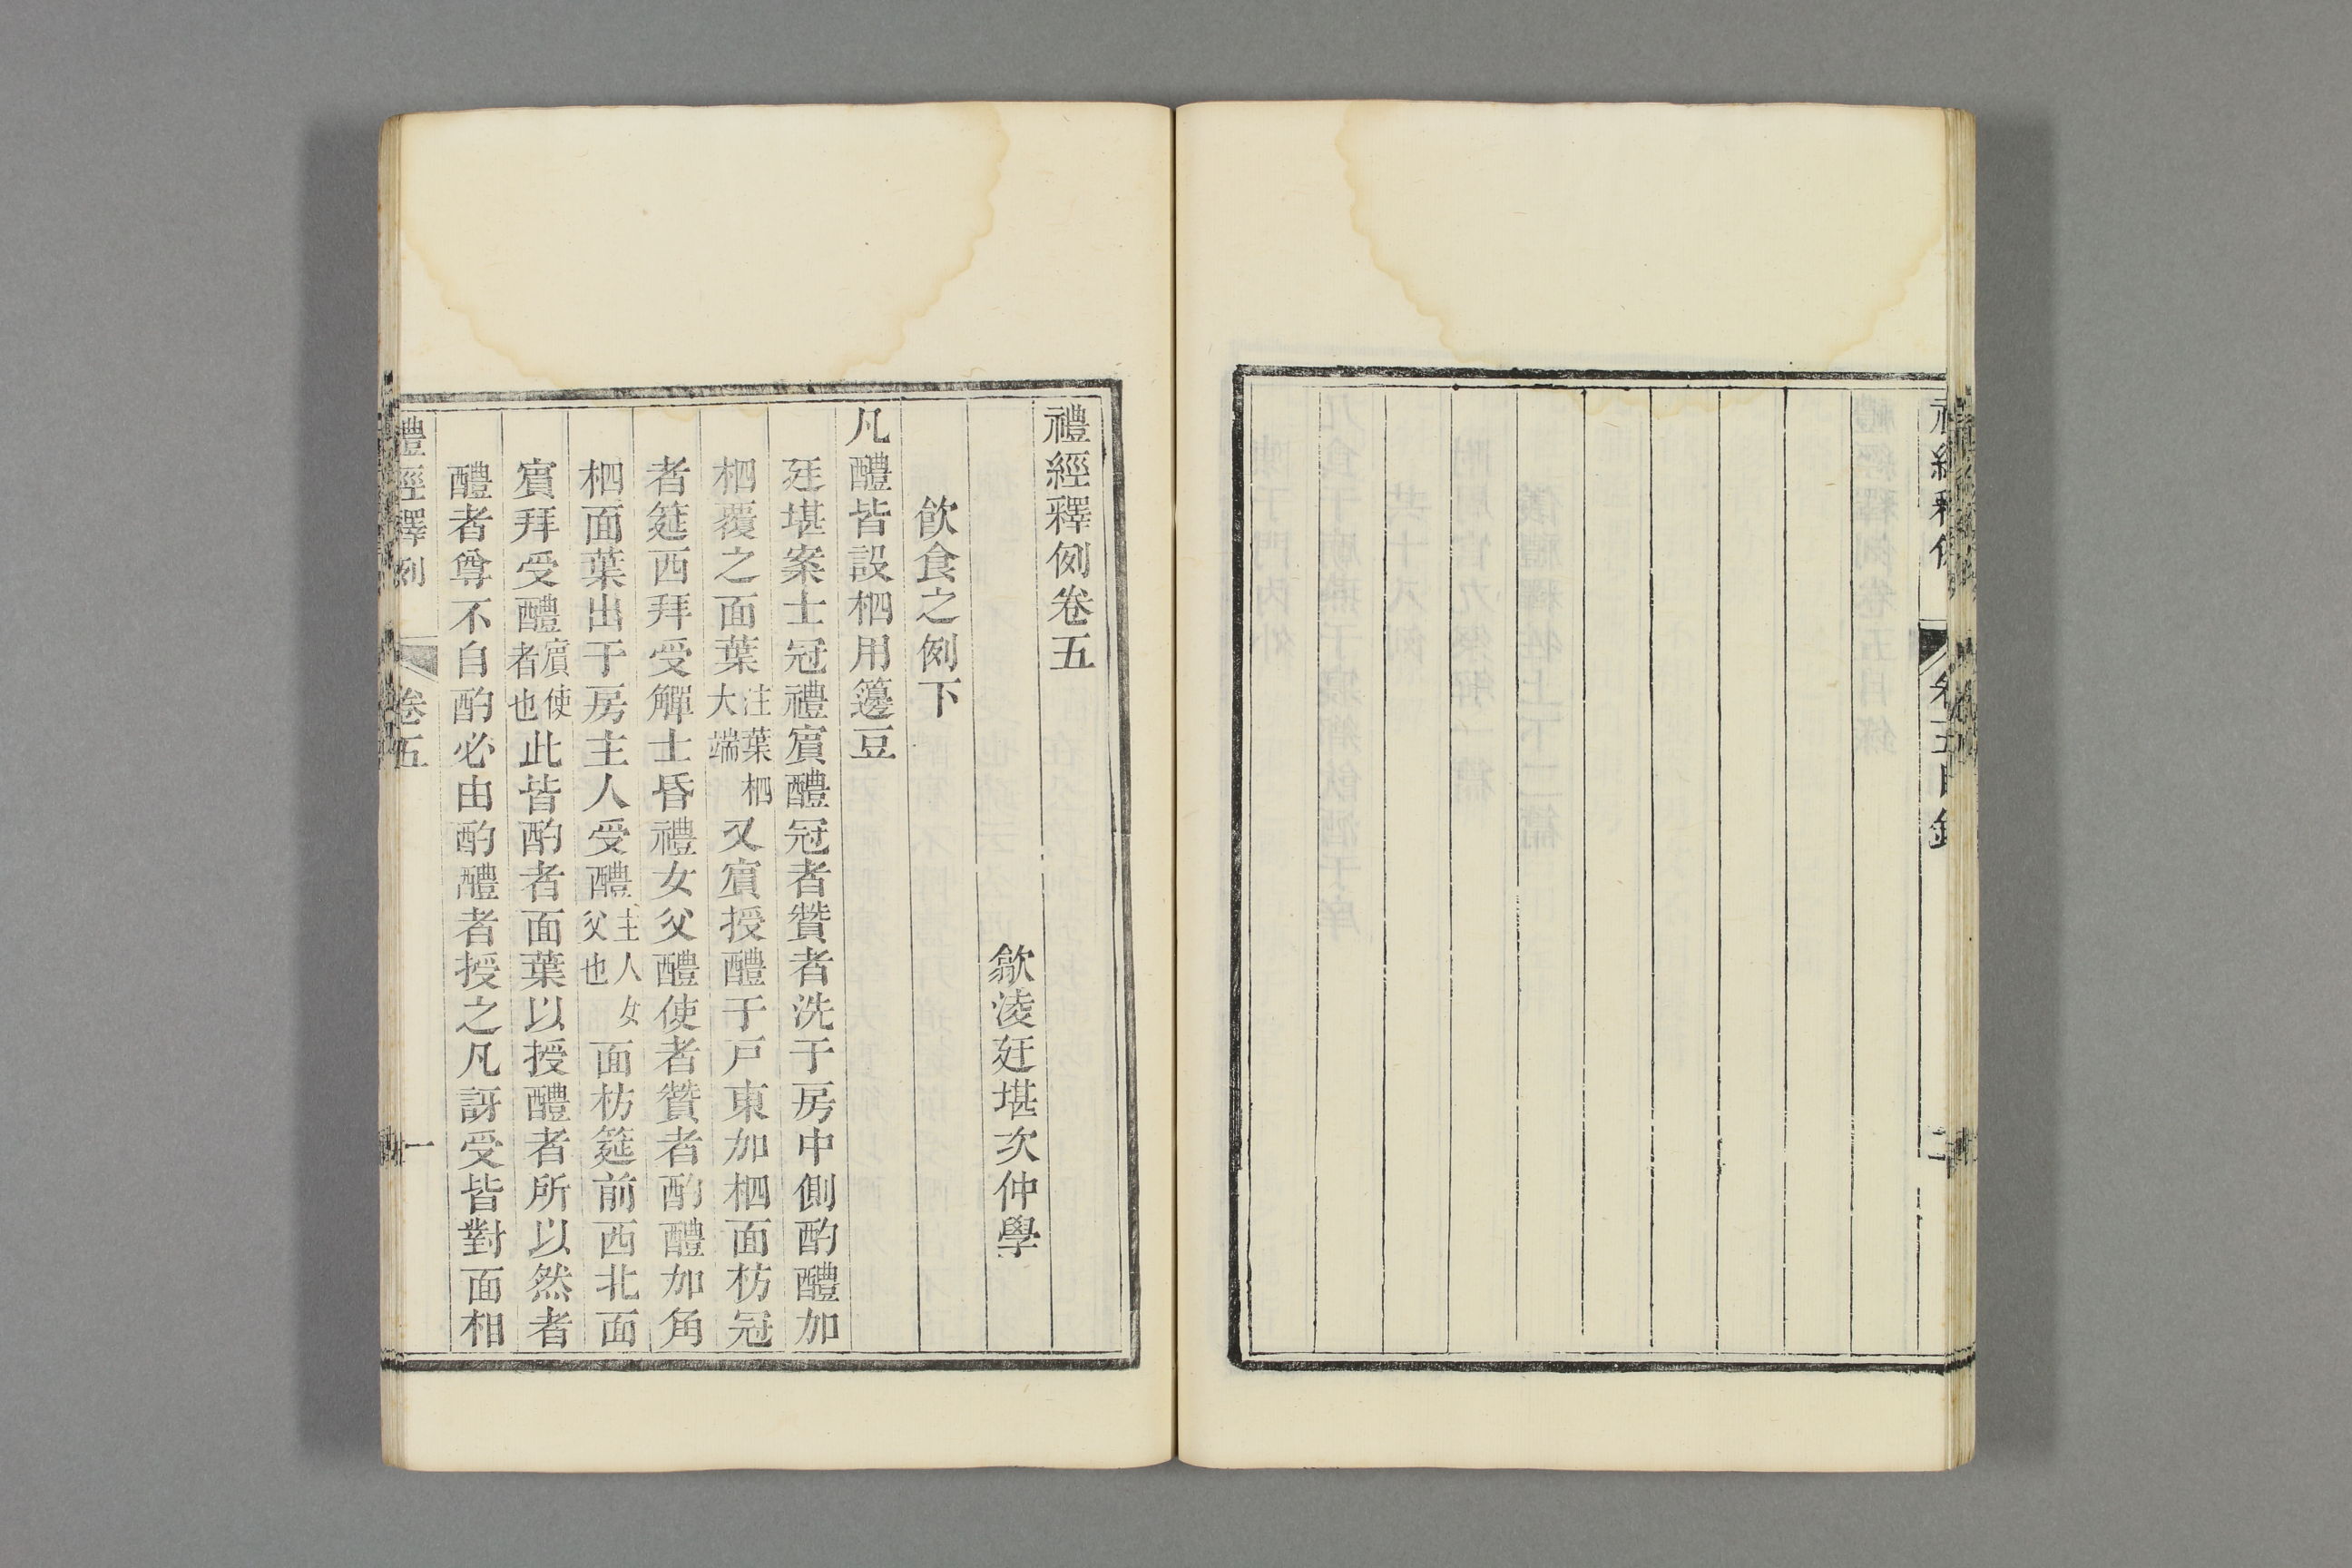 禮經釋例卷五
歙淩廷堪次仲學
飲食之例下
凡醴皆設柶用籩豆
廷堪案士冠禮賓醴冠者贊者洗于房中側酌醴加
柶覆之面葉注葉柶大端又賓授醴于戸東加柶面枋冠
者筵西拜受觶士昏禮女父醴使者贊者酌醴加角
柶面葉出于房主人受醴主人女父也面枋筵前西北面
賓拜受醴賓使者也此皆酌者面葉以授醴者所以然者
醴者尊不自酌必由酌醴者授之凡訝受皆對面相
禮經釋例 卷五 一